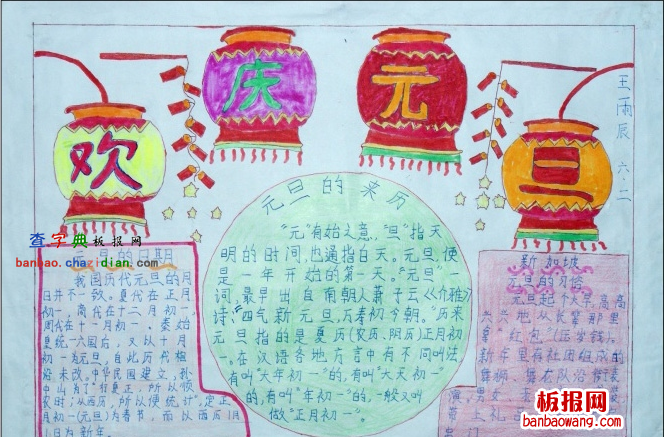 欢
庆
元
旦
王雨辰
六.二
元旦的来历
"元"有始之意,"旦"指天
明的时间,也通指白天。元旦,便
是一年开始的第一天。"元旦"一
词,最早出自南朝人萧子云《介雅》
诗:"四气新元旦,万寿初今朝。"历来
元旦指的是夏历(农历、阴历)正月初
一。在汉语各地方言中有不同叫法,
有叫"大年初一"的,有叫"大天初一"
的,有叫"年初一"的,一般又叫
做"正月初一"。
查字典板报网
banbao.chazidian.com
日期
我国历代元旦的月
日并不一致。夏代在正月
初一,商代在十二月初一,
周代在十一月初一,秦始
皇统一六国后,又以十月
初一为元旦,自此历代相
沿未改,中华民国建立,孙
中山为了"行夏正,所以顺
农时;从西历,所以便统计",定正
月初一(元旦)为春节,而以西历1月
1日为新年。
新加坡
元旦的习俗
元旦起个大早,高高
兴兴地从长辈那里
拿"红包"(压岁钱)。
新年里有社团组成的
舞狮、舞龙队沿街表
演,男女
着上礼
板报网
banbaowang.com